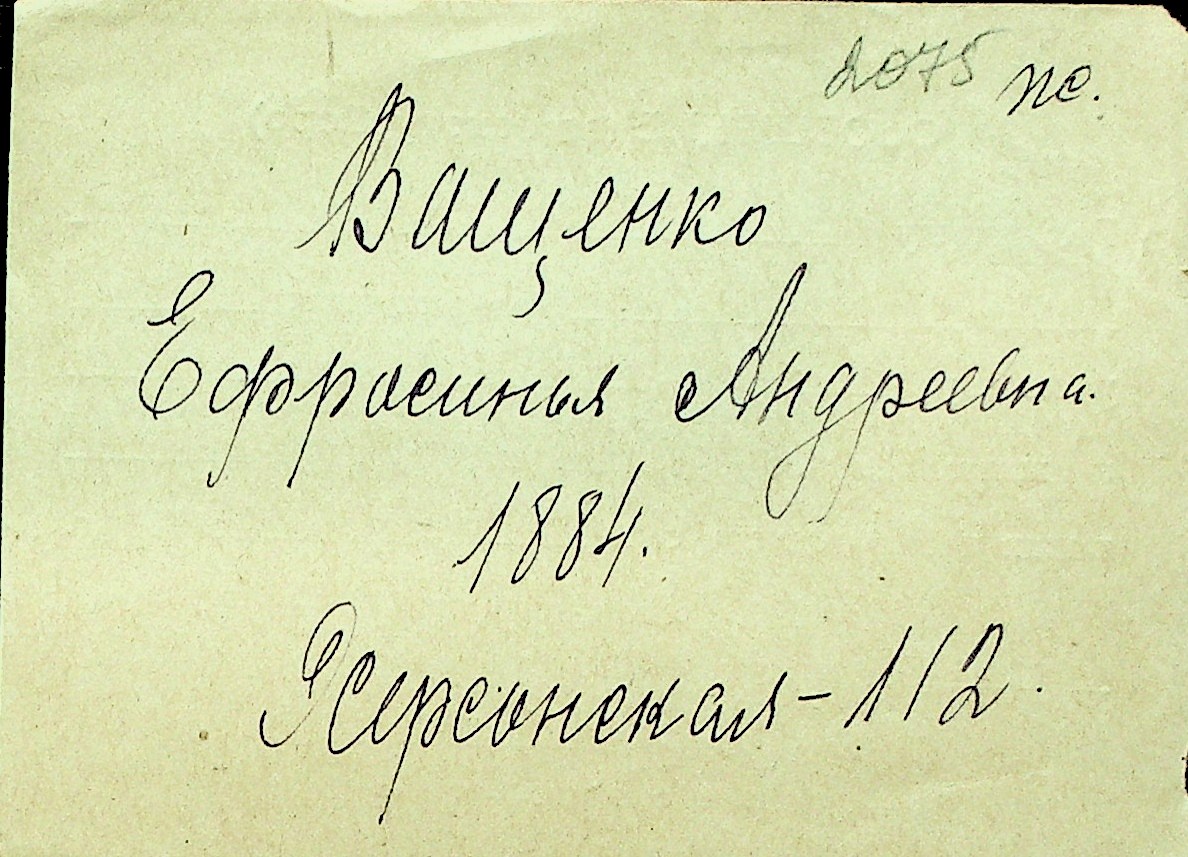 2075 пс.
Ващенко
Ефросинья Андреевна.
1884.
Херсонская - 112.